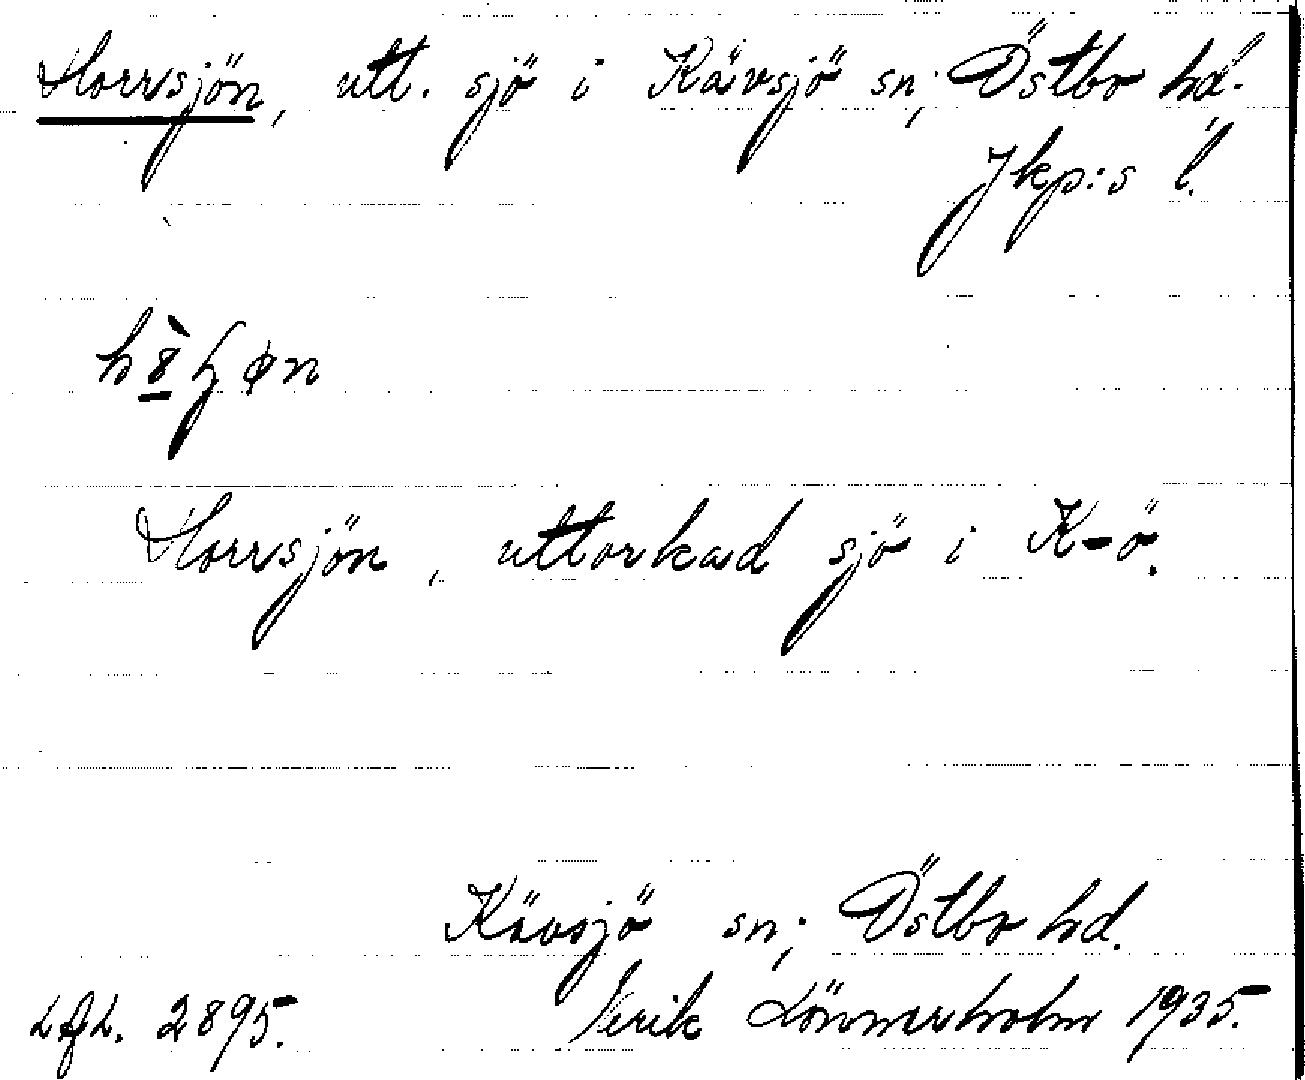 Horrsjön, utt. sjö i Kävsjö sn; Östbo hd.
Jkp:s l.
Horrsjön, uttorkad sjö i K-ö.
Kävsjö sn; Östbo hd.
Lfl. 2895. Erik Lönnerholm 1935.